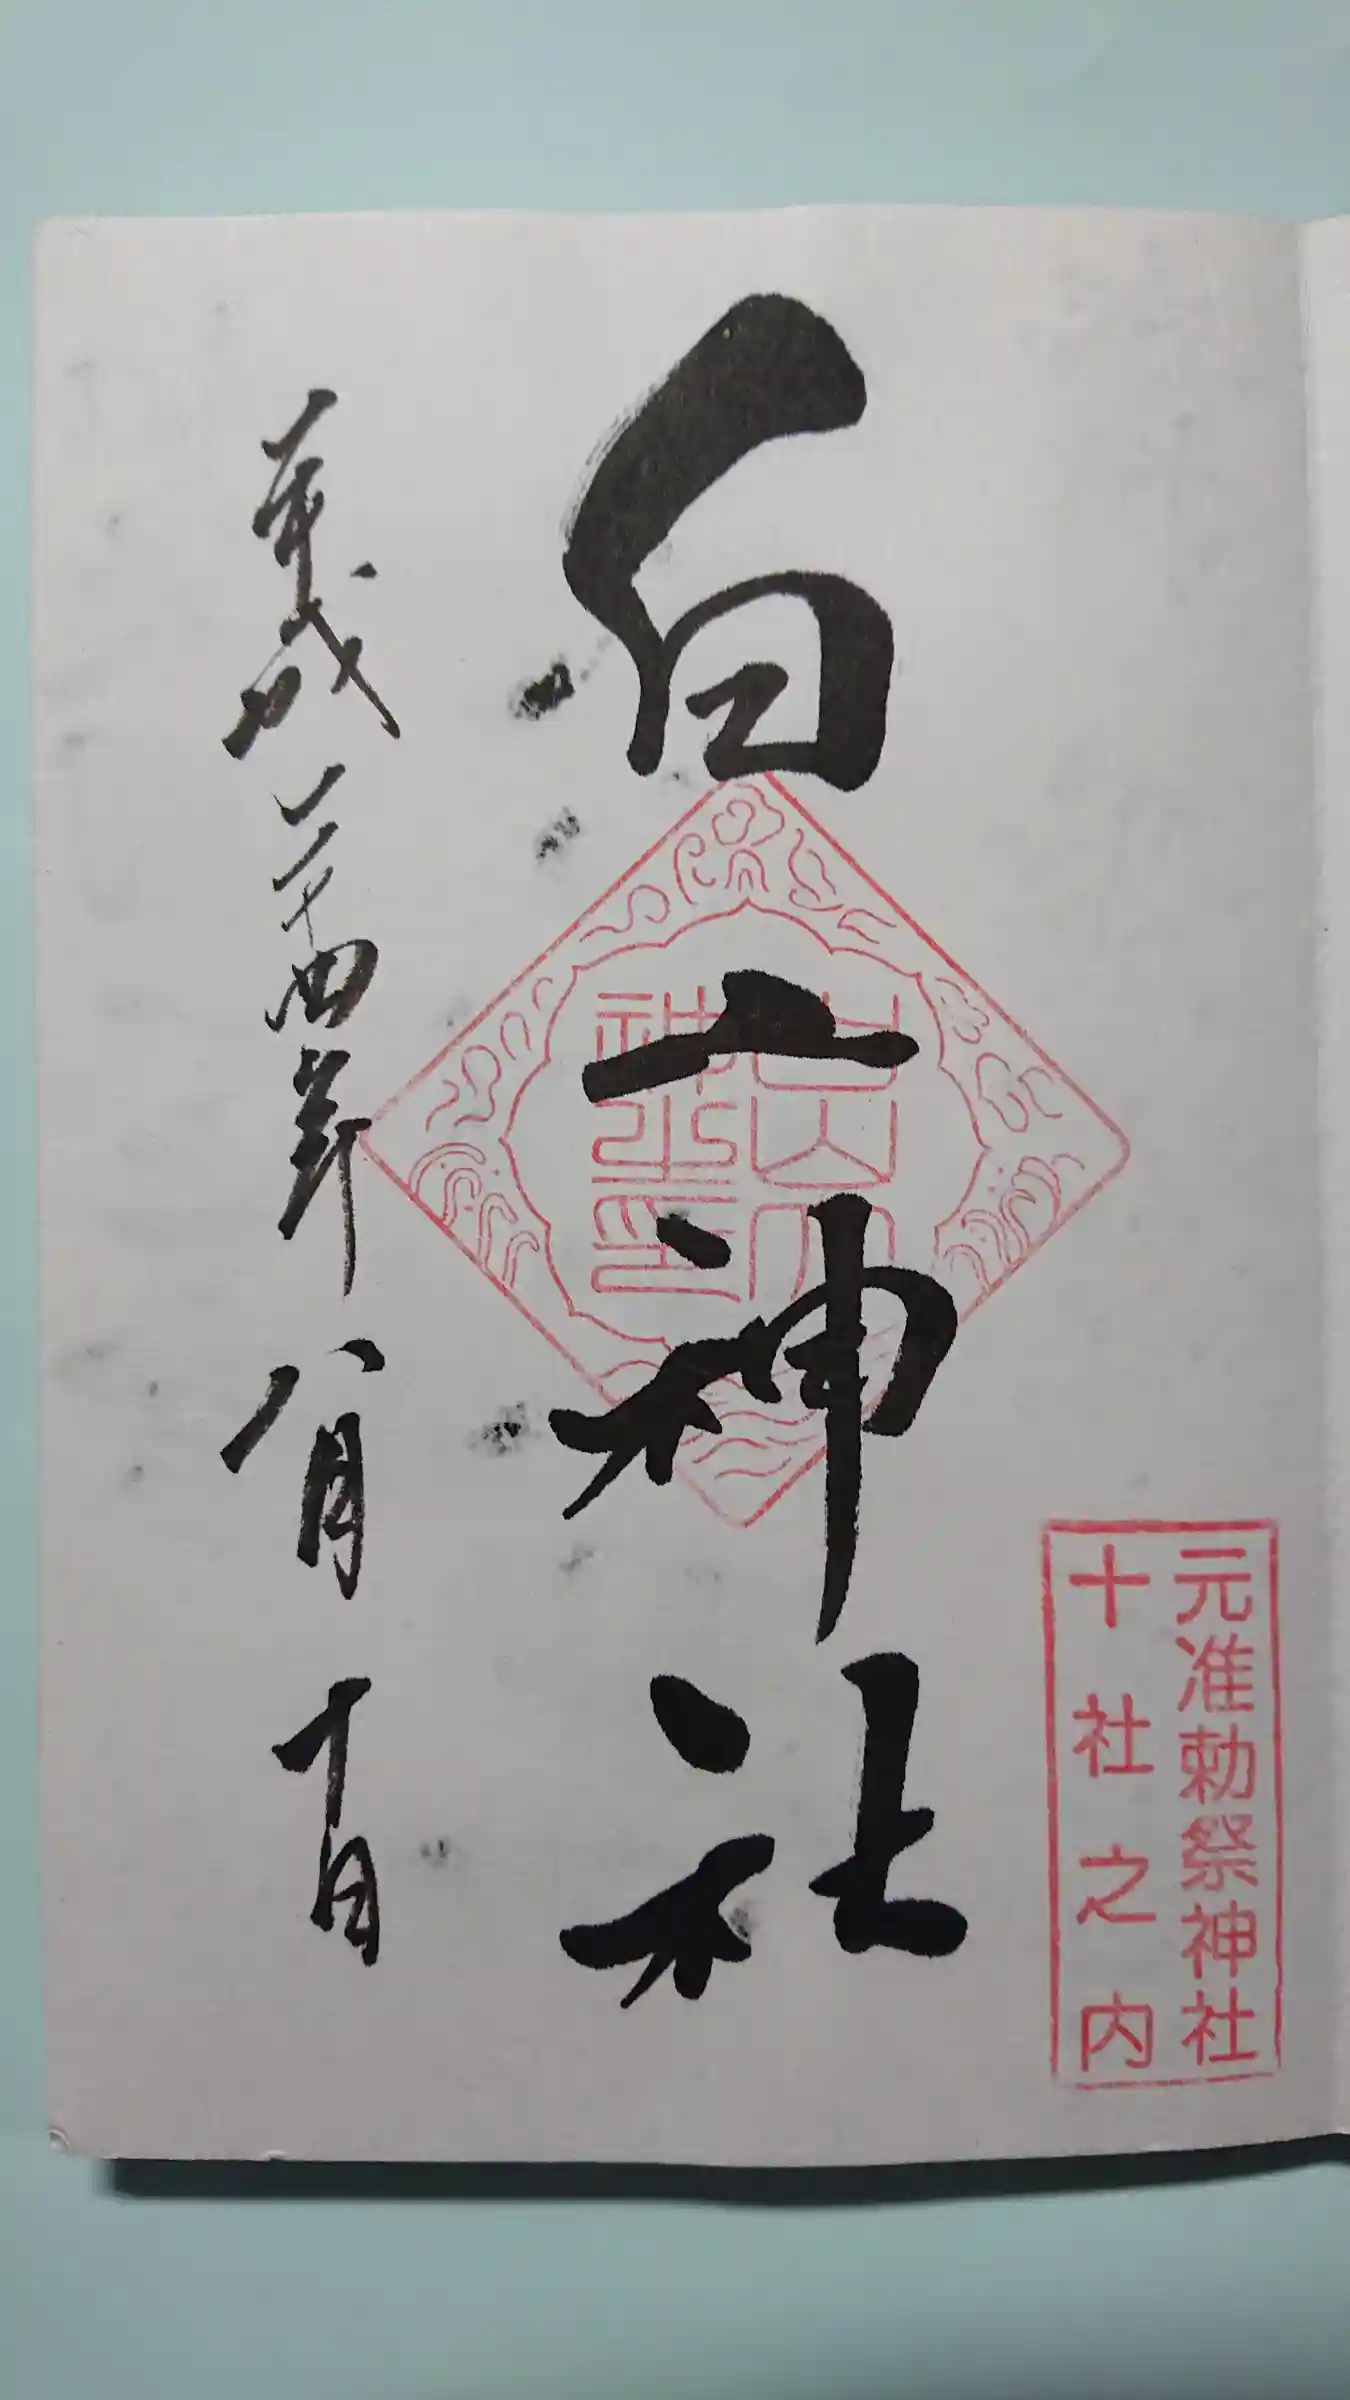 元准勅祭神社
十社之内
白山神社
平成二十四年八月十日